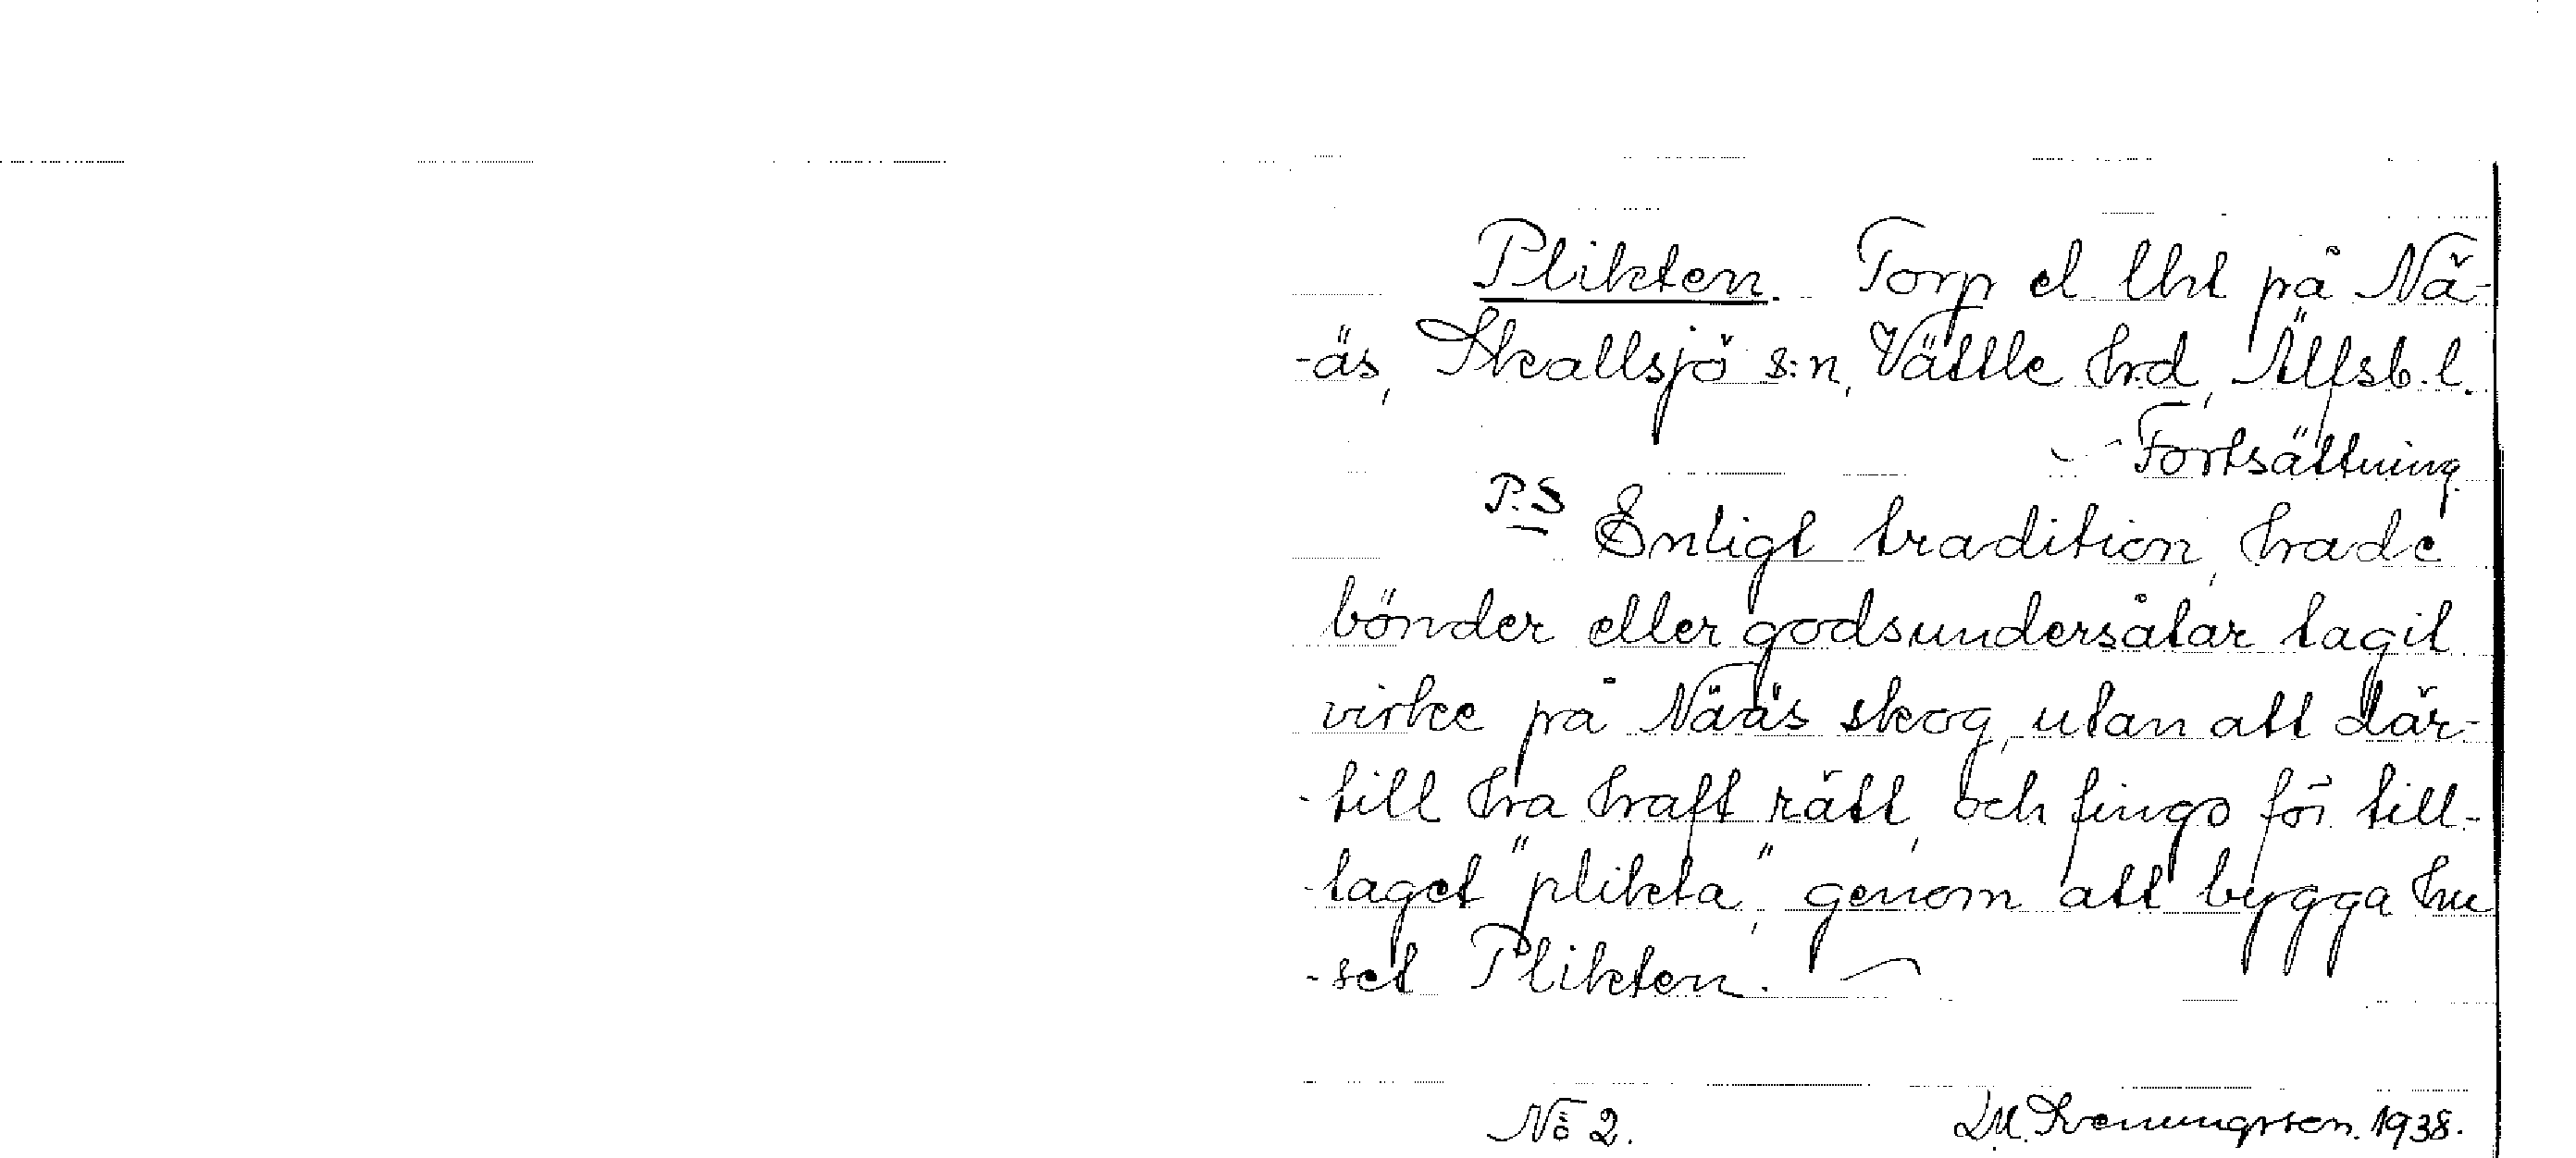 Plikten. Torp el lht på Nä-
-äs, Skallsjö s:n, Vättle hrd, Älfsb. l.
Fortsättning
P.S Enligt tradition, hade
bönder eller godsundersåtar tagit
virke på Nääs skog, utan att där-
-till ha haft rätt, och fingo för till-
-taget "plikta", genom att bygga hu
-set Plikten.
No 2. D.M. Svenungsson. 1938.